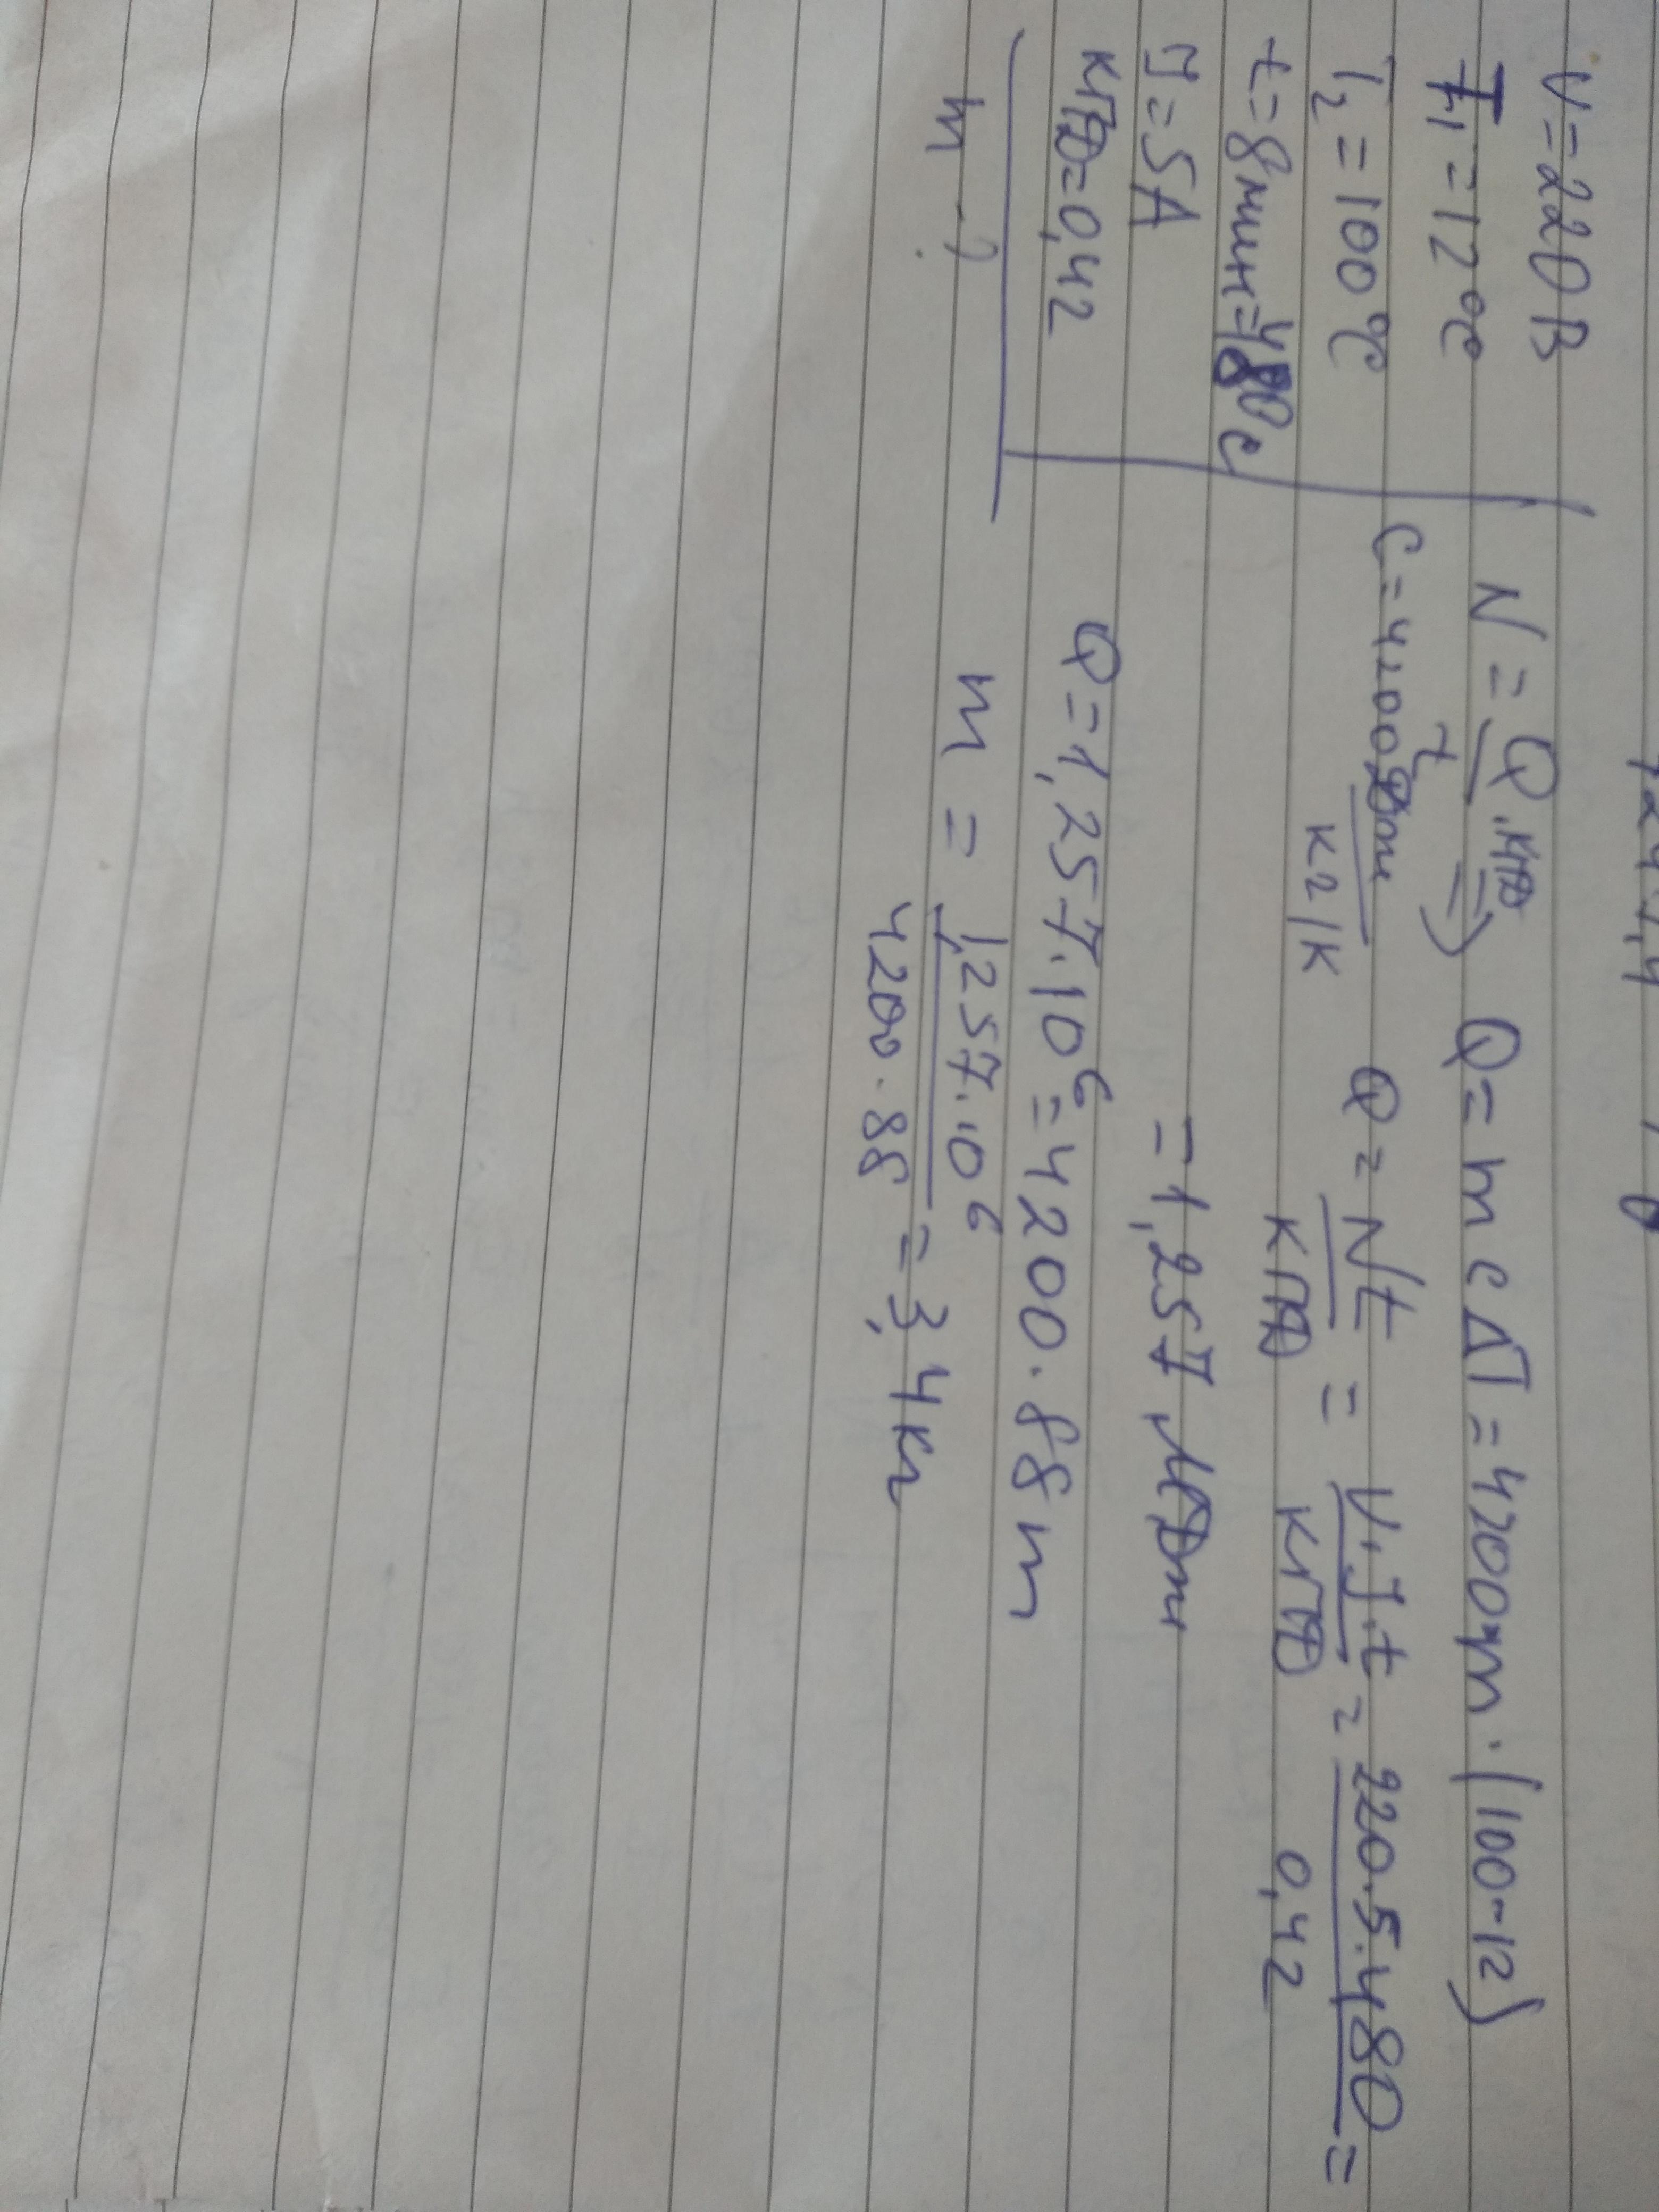 U=220В
T₁=12°C
T₂=100°C
t=8мин=480с
J=5А
КПД=0,42
m-?
N=Q·КПД/t ⇒ Q=mcΔT=4200m·(100-12)
c=4200Дж/кг/К
Q=Nt/КПД=U·J·t/КПД=220·5·480/0,42=
=1,257МДж
Q=1,257·10⁶=4200·88m
m=1,257·10⁶/4200·88=3,4кг